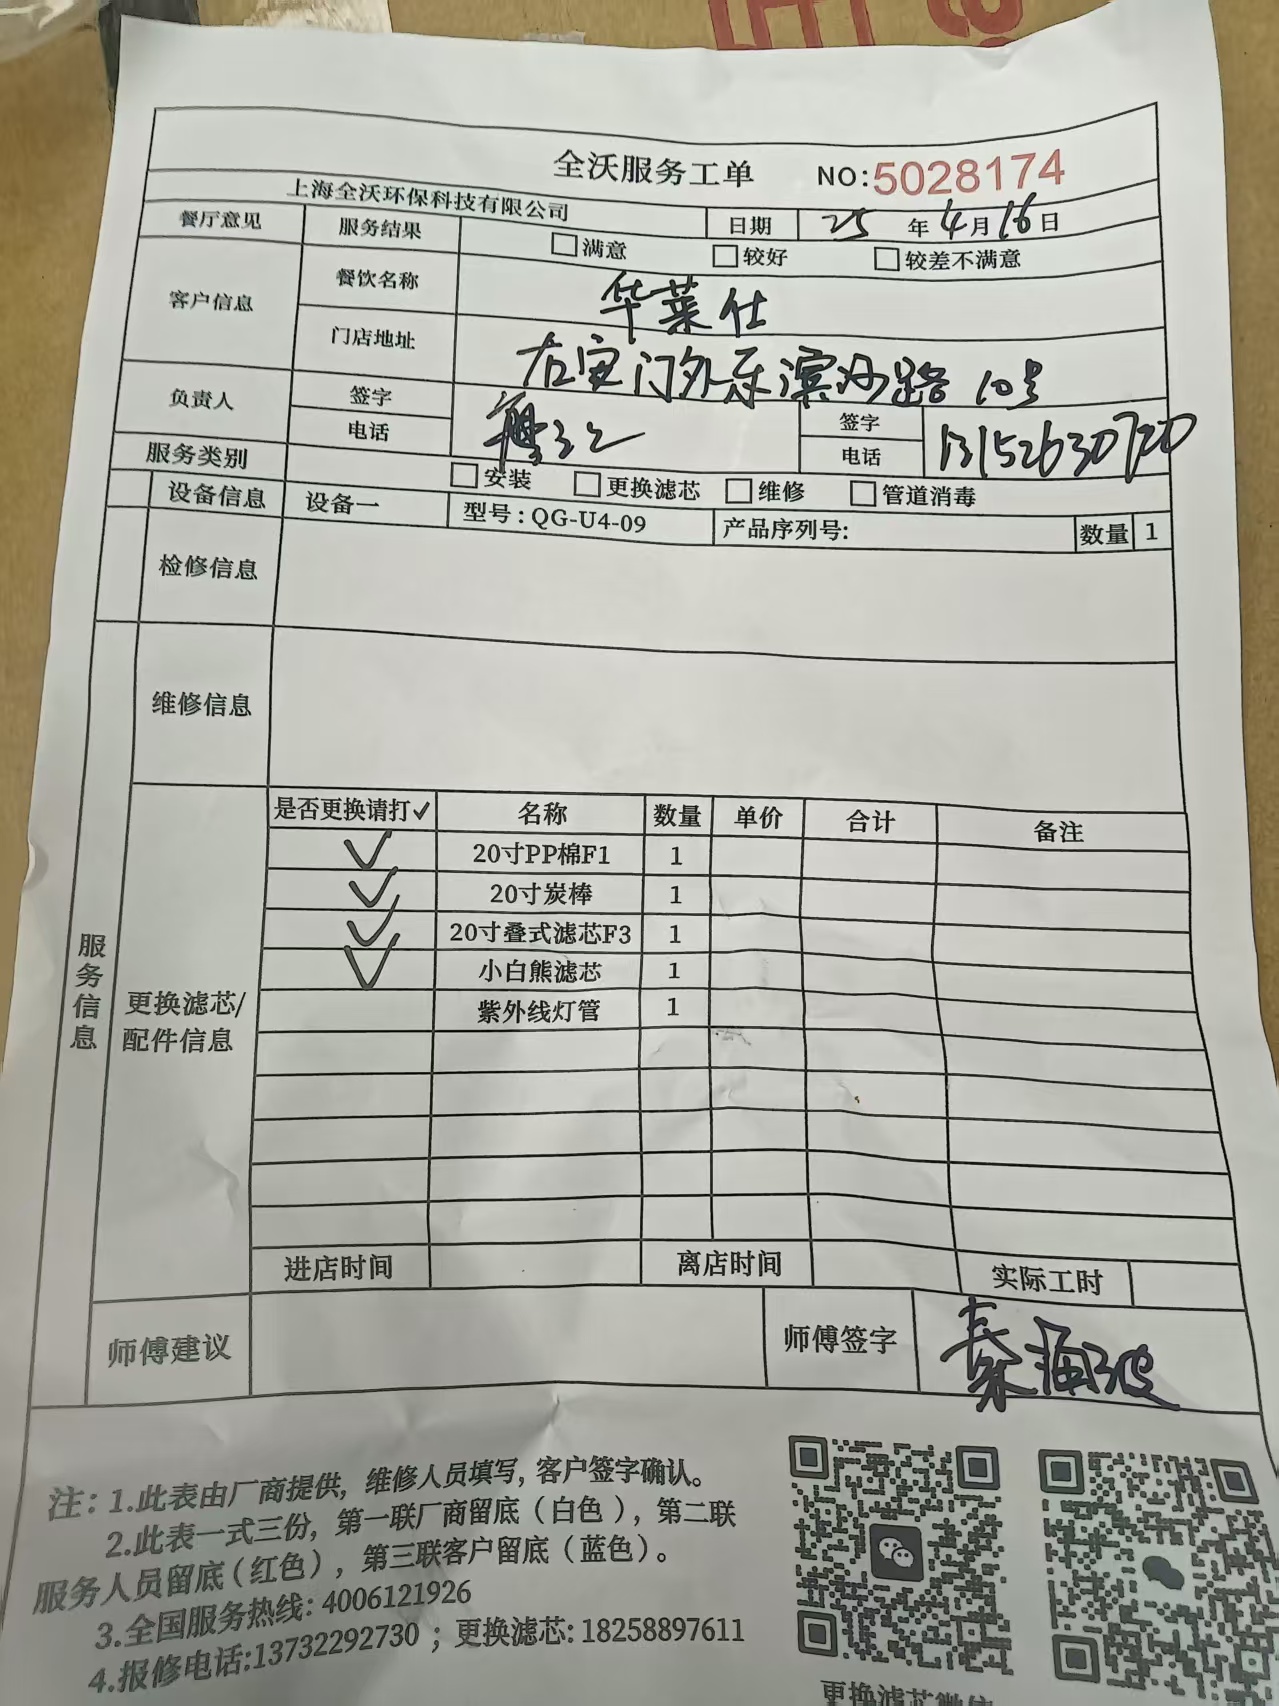 全沃服务工单 NO:5028174
上海全沃环保科技有限公司 日期 25 年 4 月 16 日
餐厅意见 服务结果 满意 较好 较差不满意
客户信息 餐饮名称 华莱仕
门店地址 右安门外东滨河路 10号
负责人 签字 签字
电话 电话 13152630720
服务类别 安装 更换滤芯 维修 管道消毒
设备信息 设备一 型号:QG-U4-09 产品序列号: 数量 1
检修信息
维修信息
服务信息
更换滤芯/
配件信息
是否更换请打✓ 名称 数量 单价 合计 备注
✓ 20寸PP棉F1 1
✓ 20寸炭棒 1
✓ 20寸叠式滤芯F3 1
✓ 小白熊滤芯 1
紫外线灯管 1
进店时间 离店时间 实际工时
师傅建议 师傅签字 秦海波
注:1.此表由厂商提供,维修人员填写,客户签字确认。
2.此表一式三份,第一联厂商留底(白色),第二联
服务人员留底(红色),第三联客户留底(蓝色)。
3.全国服务热线:4006121926
4.报修电话:13732292730;更换滤芯:18258897611
更换滤芯微信